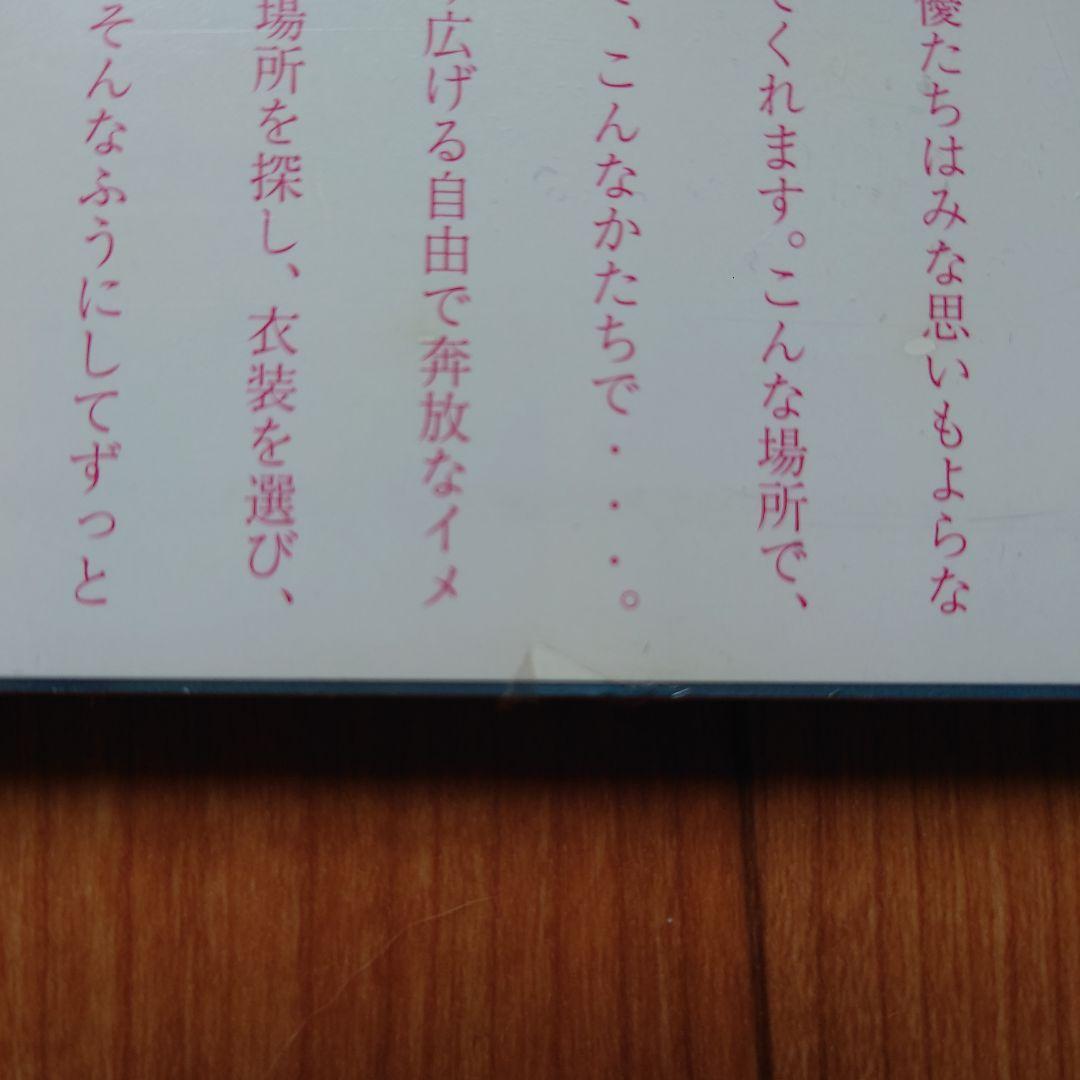 優たちはみな思いもよらな
てくれます。こんな場所で、
、こんなかたちで・・・。
広げる自由で奔放なイメ
場所を探し、衣装を選び、
そんなふうにしてずっと